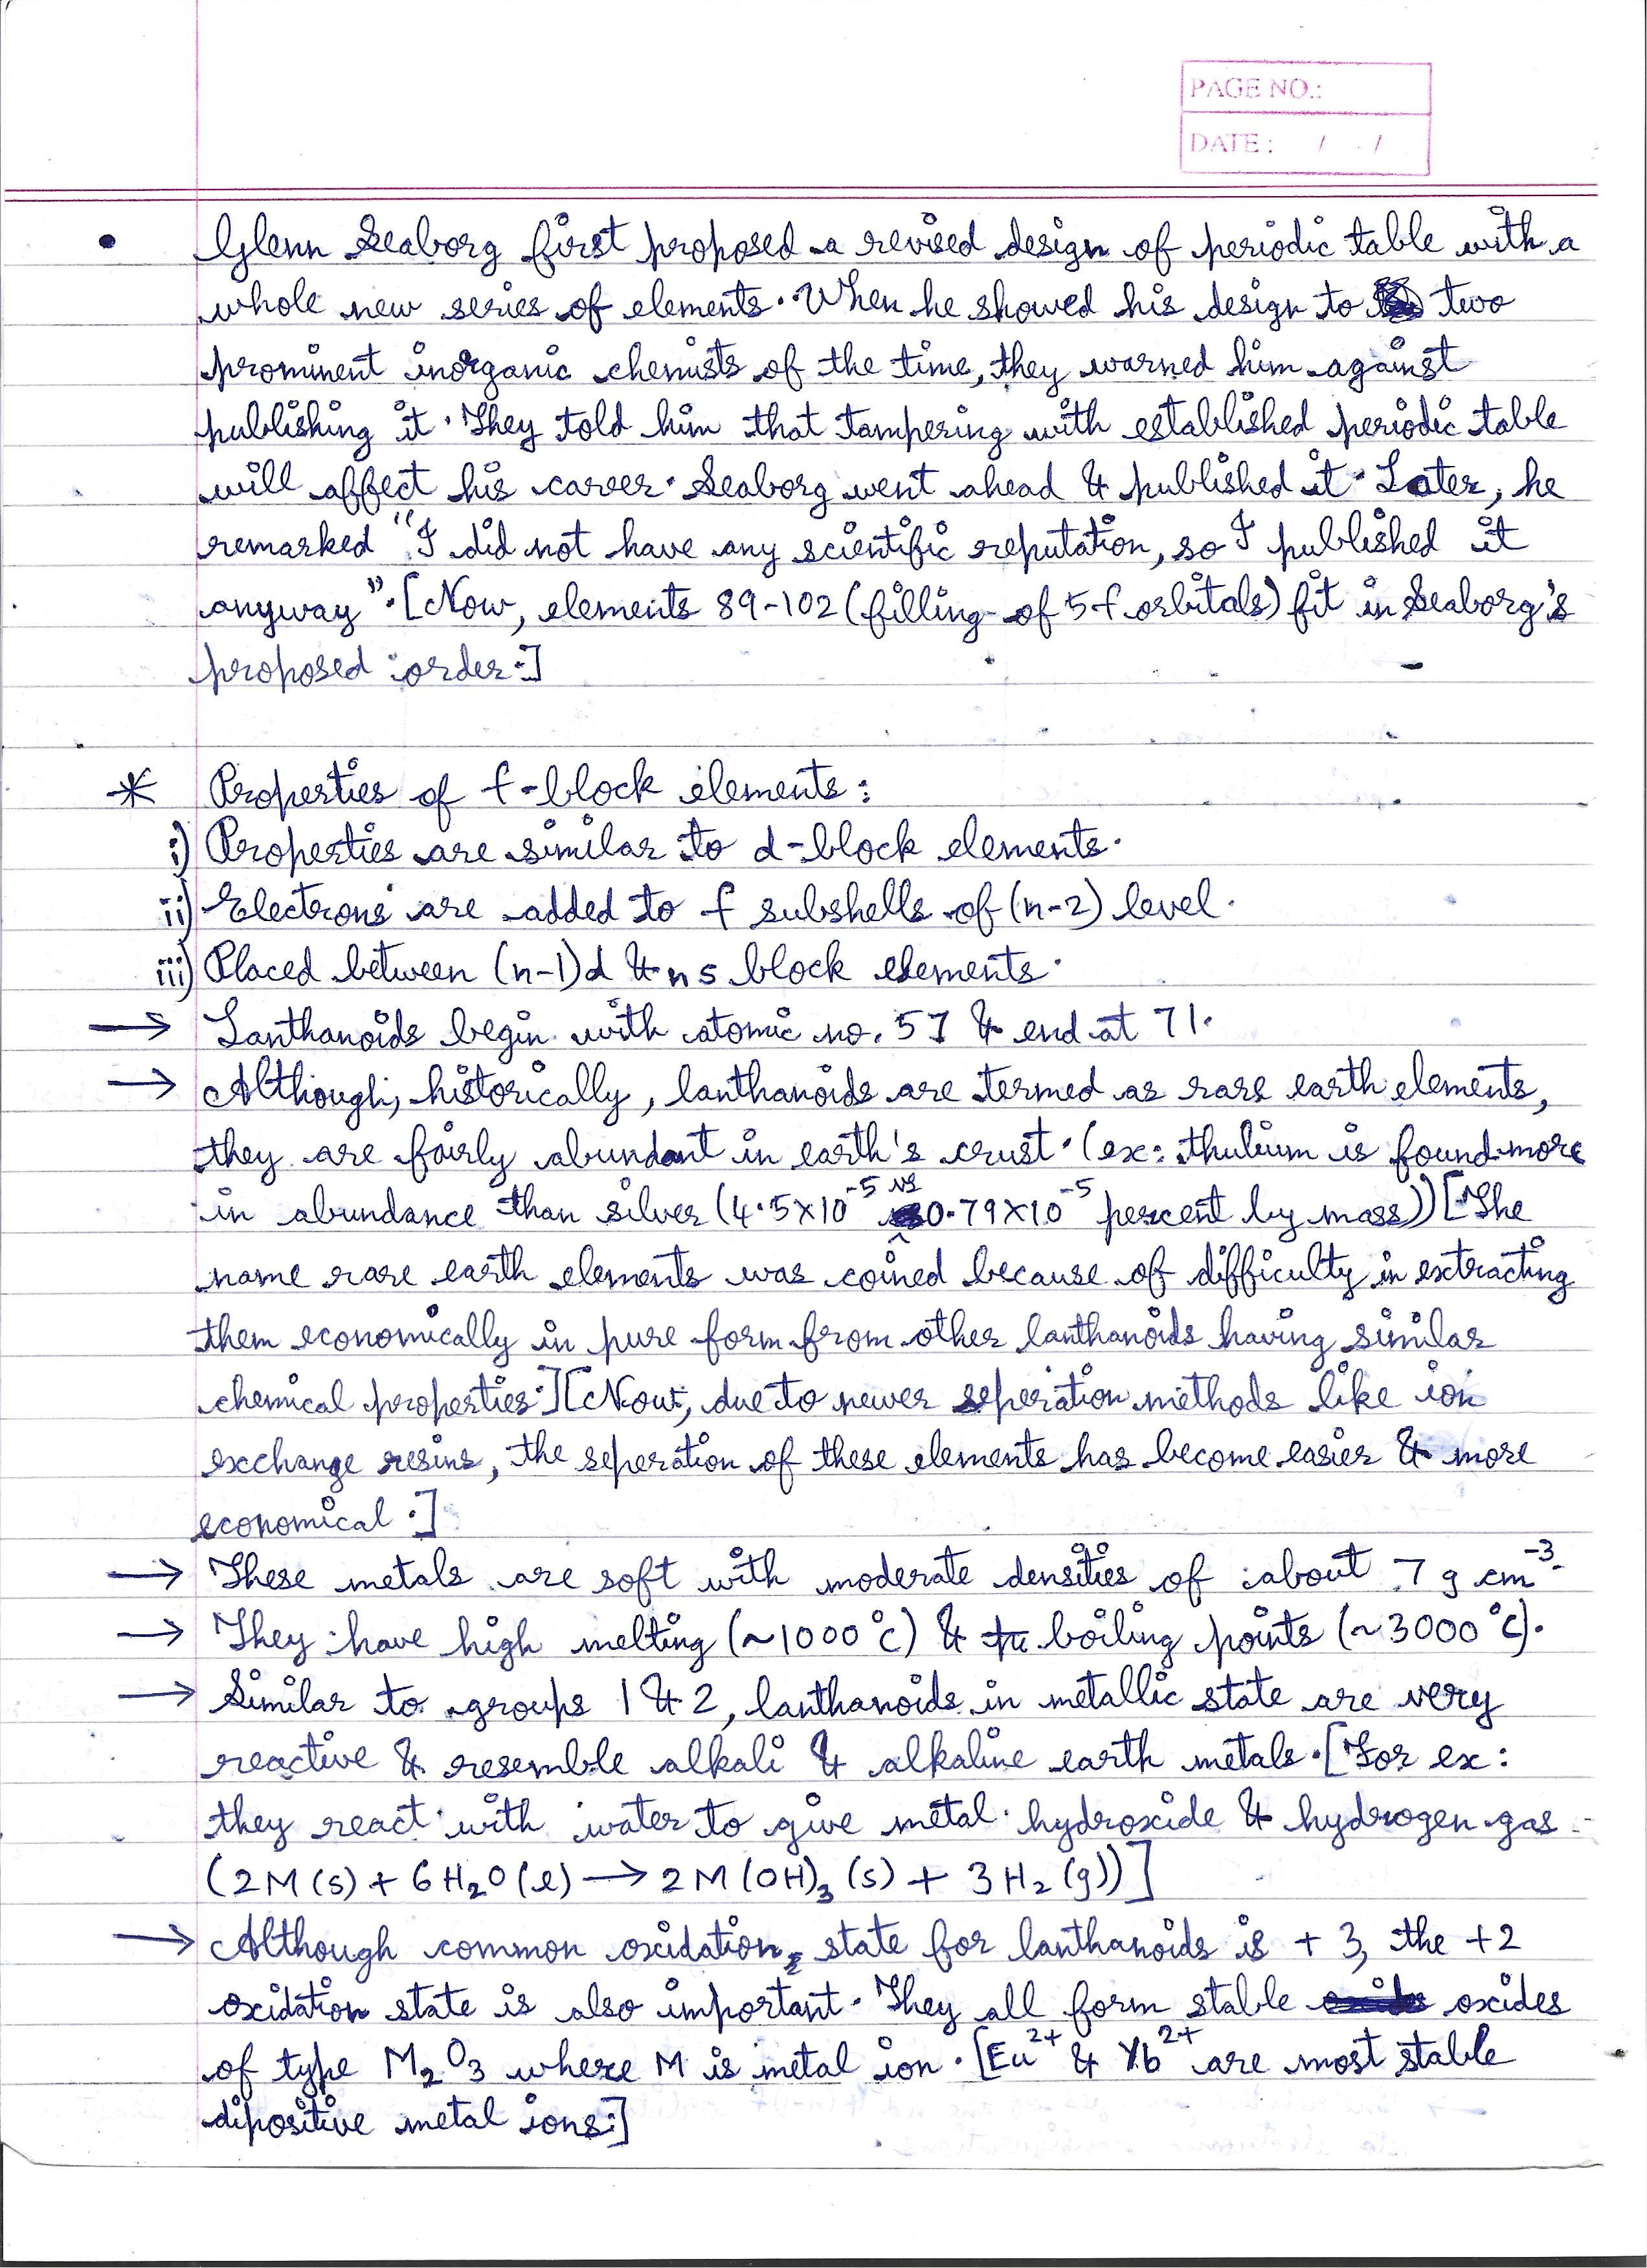 PAGE NO.:
DATE: / /
• Glenn Seaborg first proposed a revised design of periodic table with a
whole new series of elements. When he showed his design to two
prominent inorganic chemists of the time, they warned him against
publishing it. They told him that tampering with established periodic table
will affect his career. Seaborg went ahead & published it. Later, he
remarked "I did not have any scientific reputation, so I published it
anyway". [Now, elements 89-102 (filling of 5f orbitals) fit in Seaborg's
proposed order.]
* Properties of f-block elements:
i) Properties are similar to d-block elements.
ii) Electrons are added to f subshells of (n-2) level.
iii) Placed between (n-1)d & ns block elements.
→ Lanthanoids begin with atomic no. 57 & end at 71.
→ Although, historically, lanthanoids are termed as rare earth elements,
they are fairly abundant in earth's crust. (ex: thulium is found more
in abundance than silver (4.5×10⁻⁵ vs 0.79×10⁻⁵ percent by mass)) [The
name rare earth elements was coined because of difficulty in extracting
them economically in pure form from other lanthanoids having similar
chemical properties.] [Now, due to newer seperation methods like ion
exchange resins, the seperation of these elements has become easier & more
economical.]
→ These metals are soft with moderate densities of about 7 g cm⁻³.
→ They have high melting (~1000°C) & boiling points (~3000°C).
→ Similar to groups 1 & 2, lanthanoids in metallic state are very
reactive & resemble alkali & alkaline earth metals. [For ex:
they react with water to give metal hydroxide & hydrogen gas
(2M(s) + 6H₂O(l) → 2M(OH)₃(s) + 3H₂(g))]
→ Although common oxidation state for lanthanoids is +3, the +2
oxidation state is also important. They all form stable oxides
of type M₂O₃ where M is metal ion. [Eu²⁺ & Yb²⁺ are most stable
dipositive metal ions.]